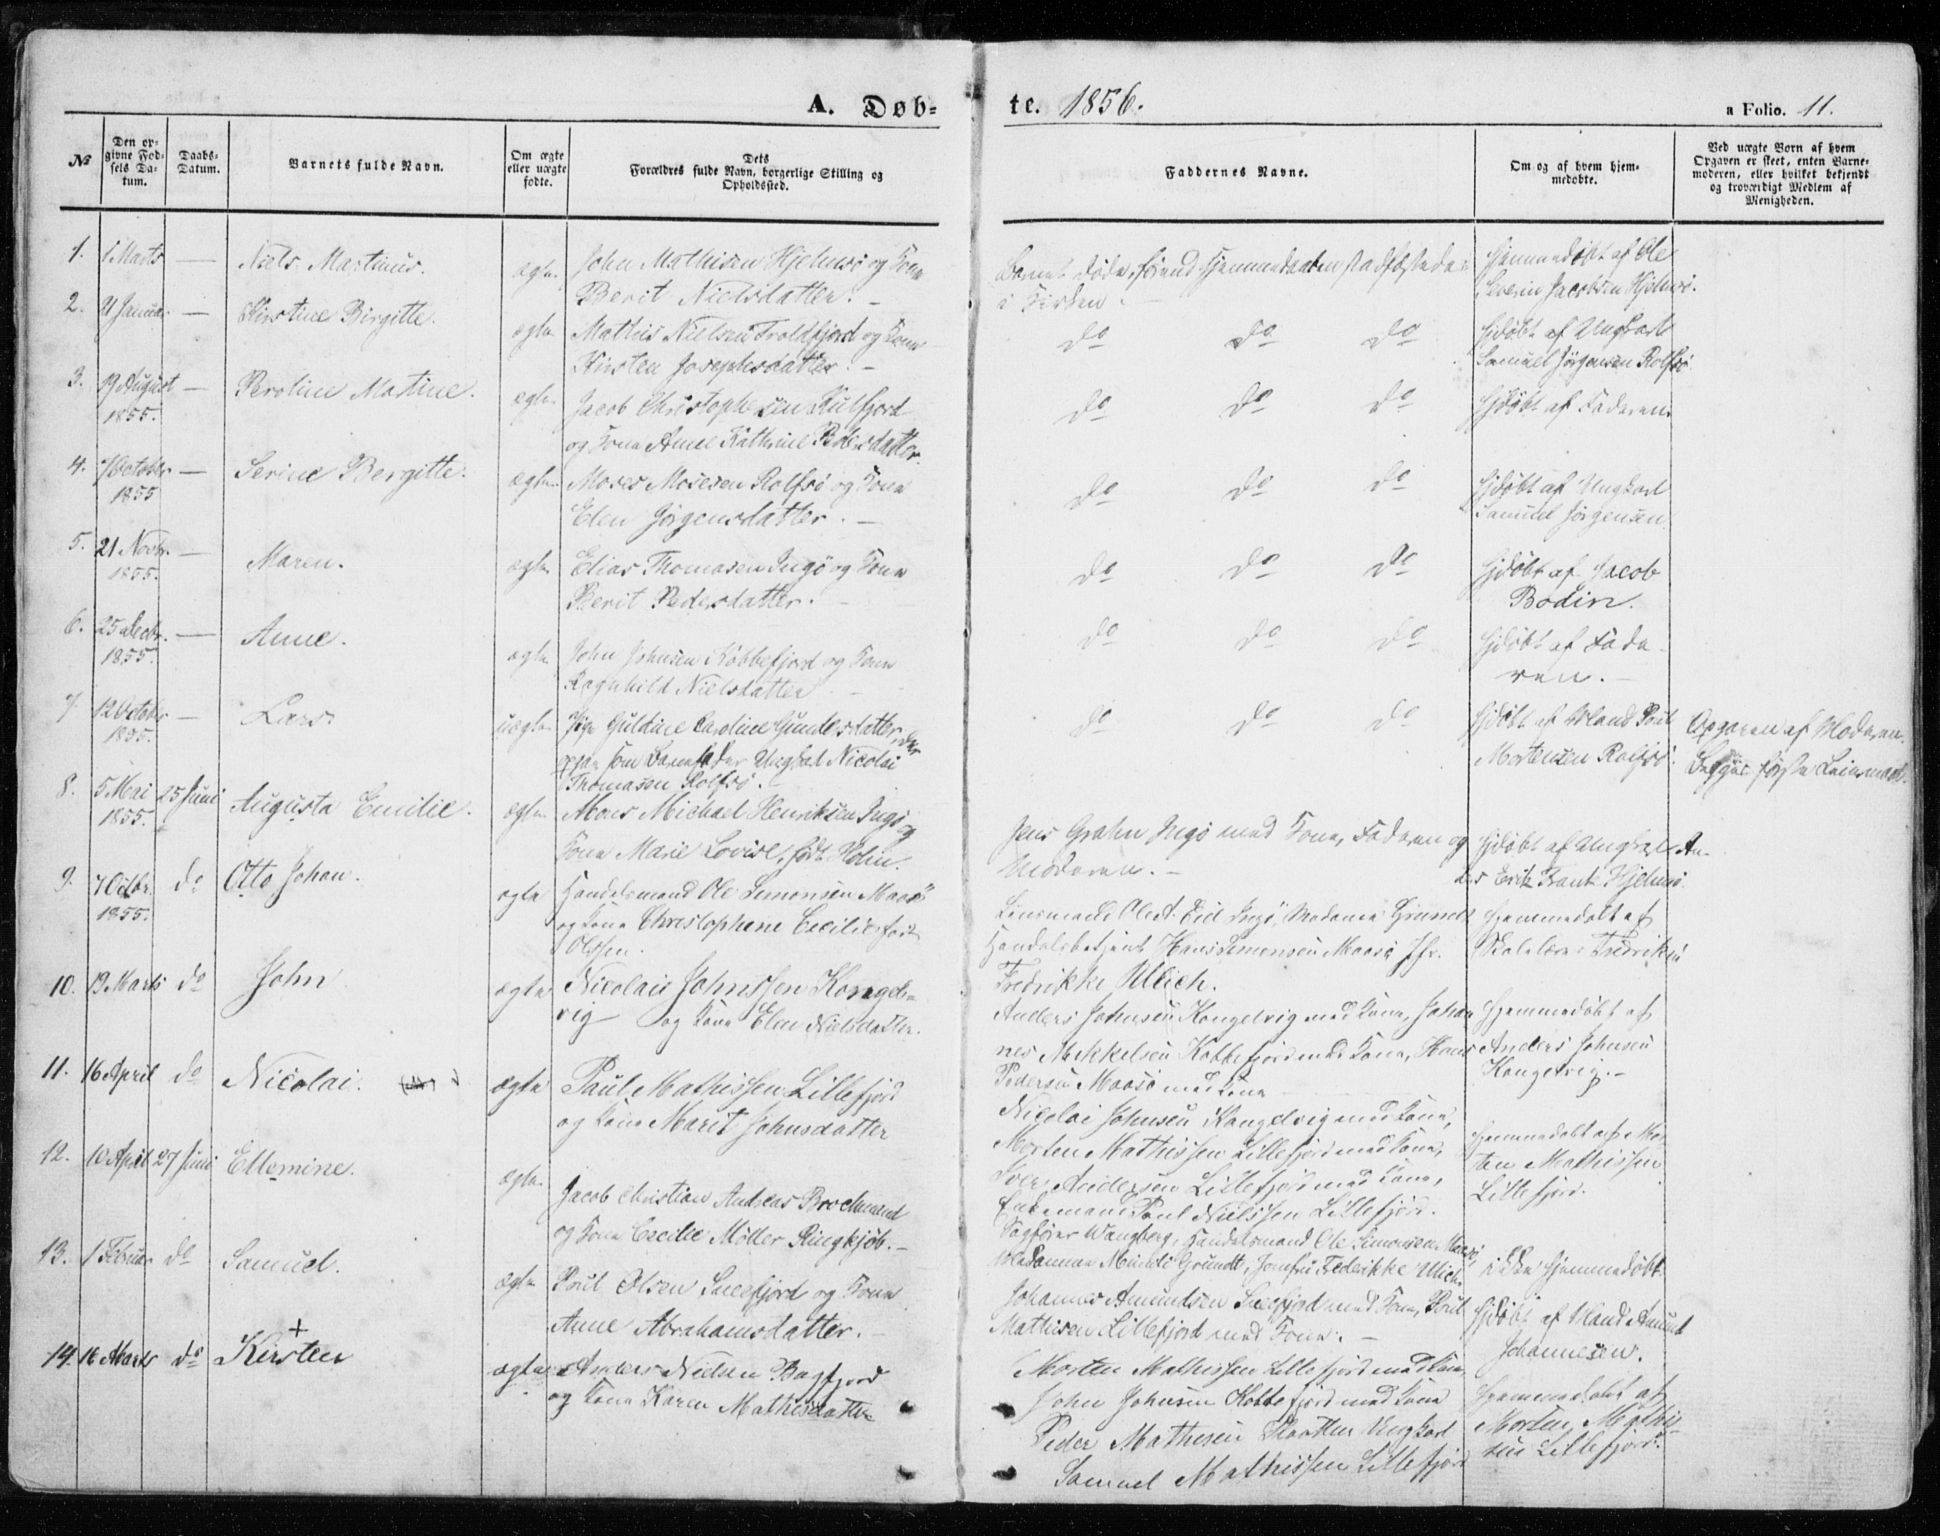 A. Døb-
te. 1856.
a Folio. 11.
№
Den op-
givne Fød-
sels Da-
tum.
Daabs-
Datum.
Barnets fulde Navn.
Om ægte
eller uægte
fødte.
Dets
Forældres fulde Navn, borgerlige Stilling og
Opholdssted.
Faddernes Navne.
Om og af hvem hjem-
medøbte.
Ved uægte Børn af hvem
Opgaven er skeet, enten Barne-
moderen, eller hvilket bekjendt
og troværdigt Medlem af
Menigheden.
1. 1 Marts — Niels Martinus. ægte. John Mathisen Hjelmsø og Kone
Berit Nielsdatter. —
Barnet døde, førend Hjemmedaaben stadfæstedes
i Kirken. —
Hjemmedøbt af Ole
Severin Jacobsen Hjelmsø.
2. Januar — Kirstine Birgitte. ægte Mathis Nielsen Troldfjord og Kone
Kirsten Josephsdatter. —
do do do
Hjdøbt af Ungkarl
Samuel Jørgensen Rolfsø
3. 19 August — 
1855.
Beroline Martine. ægte. Jacob Christophersen Kulfjord
og Kone Anne Kathrine Pedersdatter.
do do do
Hjdøbt af Faderen.
4. 7 October —
1855
Serine Bergitte. ægte. Moses Mosesen Rolfsø og Kone
Elen Jørgensdatter. —
do do do
Hjdøbt af Ungkarl
Samuel Jørgensen
5. 21 Novbr. —
1855.
Maren. ægte Elias Thomasen Ingø og Kone
Berit Pedersdatter. —
do do do
Hjdøbt af Jacob
Bodin.
6. 25 Decbr. —
1855.
Anne. ægte John Johnsen Kobbefjord og Kone
Ragnhild Nielsdatter. —
do do do
Hjdøbt af Fade-
ren. —
7. 12 October —
1855.
Lars. uægte. Pige Guldine Caroline Gundersdatter,
som Barnefader Ungkarl Nicolai
Thomassen Rolfsø.
do do do
Hjdøbt af Mand Poul
Mortensen Rolfsø.
Opgaven af Moderen.
Begges første Leiermaal.
8. 5 Mai 25 Juni
1855.
Augusta Emilie. ægte. Mons Michael Henriksen Ingø og
Kone Marie Lovise, født Holm.
Jens Grahn Ingø med Kone, Faderen og
Moderen. —
Hjdøbt af Ungkarl An-
ders Erik Brant Hjelmsø.
9. 7 Octbr. do
1855.
Otto Johan. ægte Handelsmand Ole Simonsen Maasø
og Kone Christophine Cecilie født
Olssen.
Lensmand Ole A. Ingø, Madame Grundt
Handelsbetjent Hans Simonsen Maasø Jfr.
Fredrikke Ullich.
Hjemmedøbt af
Skolelærer Fredriksen
10. 19 Marts do John ægte Nicolai Johnssen Kongels-
vig og Kone Elen Nielsdatter.
Anders Johnsen Kongelvig med Kone, Johan-
nes Mikkelsen Kobbefjord med Kone, Hans
Pedersen Maasø med Kone
Hjemmedøbt af
Anders Johnsen
Kongelvig. —
11. 16 April do Nicolai. ægte Paul Mathissen Lillefjord
og Kone Marit Johnsdatter
Nicolai Johnsen Kongelvig med Kone,
Morten Mathissen Lillefjord med Kone,
Iver Andersen Lillefjord med Kone,
Enkemand Paul Nielssen Lillefjord.
Hjemmedøbt af Mor-
ten Mathissen
Lillefjord.
12. 10 April 27 Juni Ellemine. ægte. Jacob Christian Andreas Brochmand
og Kone Cecilie Møller Ringkjøb. —
Sagfører Wangberg, Handelsmand Ole Simonsen Maasø,
Madamme Grundt, Jomfru Frederikke Ulich.
ikke hjemmedøbt.
13. 1 Februar do Samuel. ægte Poul Olsen Sneefjord og Kone
Anne Abrahamsdatter. —
Johannes Amundsen Sneefjord med Kone, Poul
Mathisen Lillefjord med Kone. —
Hjdøbt af Mand Amund
Johannesen.
14. 16 Marts do Kirsten ægte Anders Nielsen Bagfjord
og Kone Karen Mathisdatter
Morten Mathissen Lillefjord med Kone,
John Johnsen Kobbefjord med Kone
Peder Mathisen Ungkarl
Samuel Mathissen Lillefjord
Hjemmedøbt af
Morten Mathis-
sen Lillefjord.